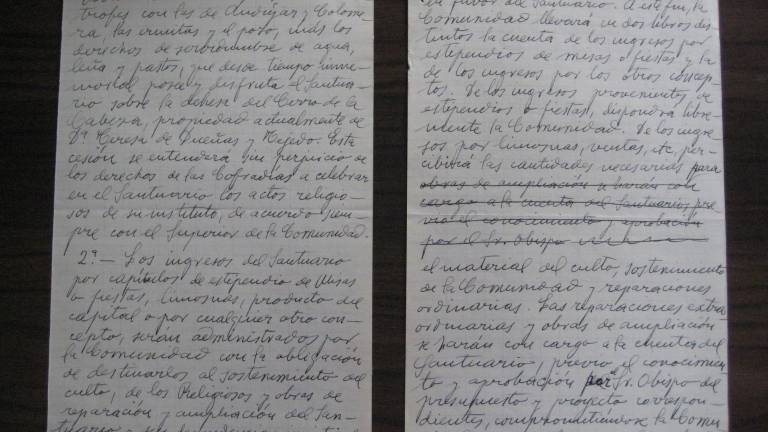 trofes con las de Andújar y Colome-
ra, las ermitas y el pozo, más los
derechos de servidumbre de agua,
leña y pastos, que desde tiempo inme-
morial posee y disfruta el Santua-
rio sobre la dehesa del Cerro de la
Cabeza, propiedad actualmente de
Dª Teresa de Dueñas y Tejedo. Esta
cesión se entenderá sin perjuicio de
los derechos de las Cofradías a celebrar
en el Santuario los actos religio-
sos de su instituto, de acuerdo siem-
pre con el Superior de la Comunidad.
2ª — Los ingresos del Santuario
por capítulos de estipendio de Misas
o fiestas, limosnas, producto del
capital o por cualquier otro con-
cepto, serán administrados por
la Comunidad con la obligación
de destinarlos al sostenimiento del
culto, de los Religiosos y obras de
reparación y ampliación del San-
tuario
en favor del Santuario. A este fin, la
Comunidad llevará en dos libros dis-
tintos la cuenta de los ingresos por
estipendios de misas o fiestas y la
de los ingresos por los otros concep-
tos. De los ingresos provenientes de
estipendios o fiestas, dispondrá libre-
mente la Comunidad. De los ingre-
sos por limosnas, ventas, etc, per-
cibirá las cantidades necesarias para
obras de ampliación se harán con
cargo a la cuenta del Santuario, pre
vio el conocimiento y aprobación
por el Sr. Obispo
el material del culto, sostenimiento
de la Comunidad y reparaciones
ordinarias. Las reparaciones extra-
ordinarias y obras de ampliación
se harán con cargo a la cuenta del
Santuario, previo el conocimien-
to y aprobación por el Sr. Obispo del
presupuesto y proyecto correspon-
dientes, comprometiéndose la Comu